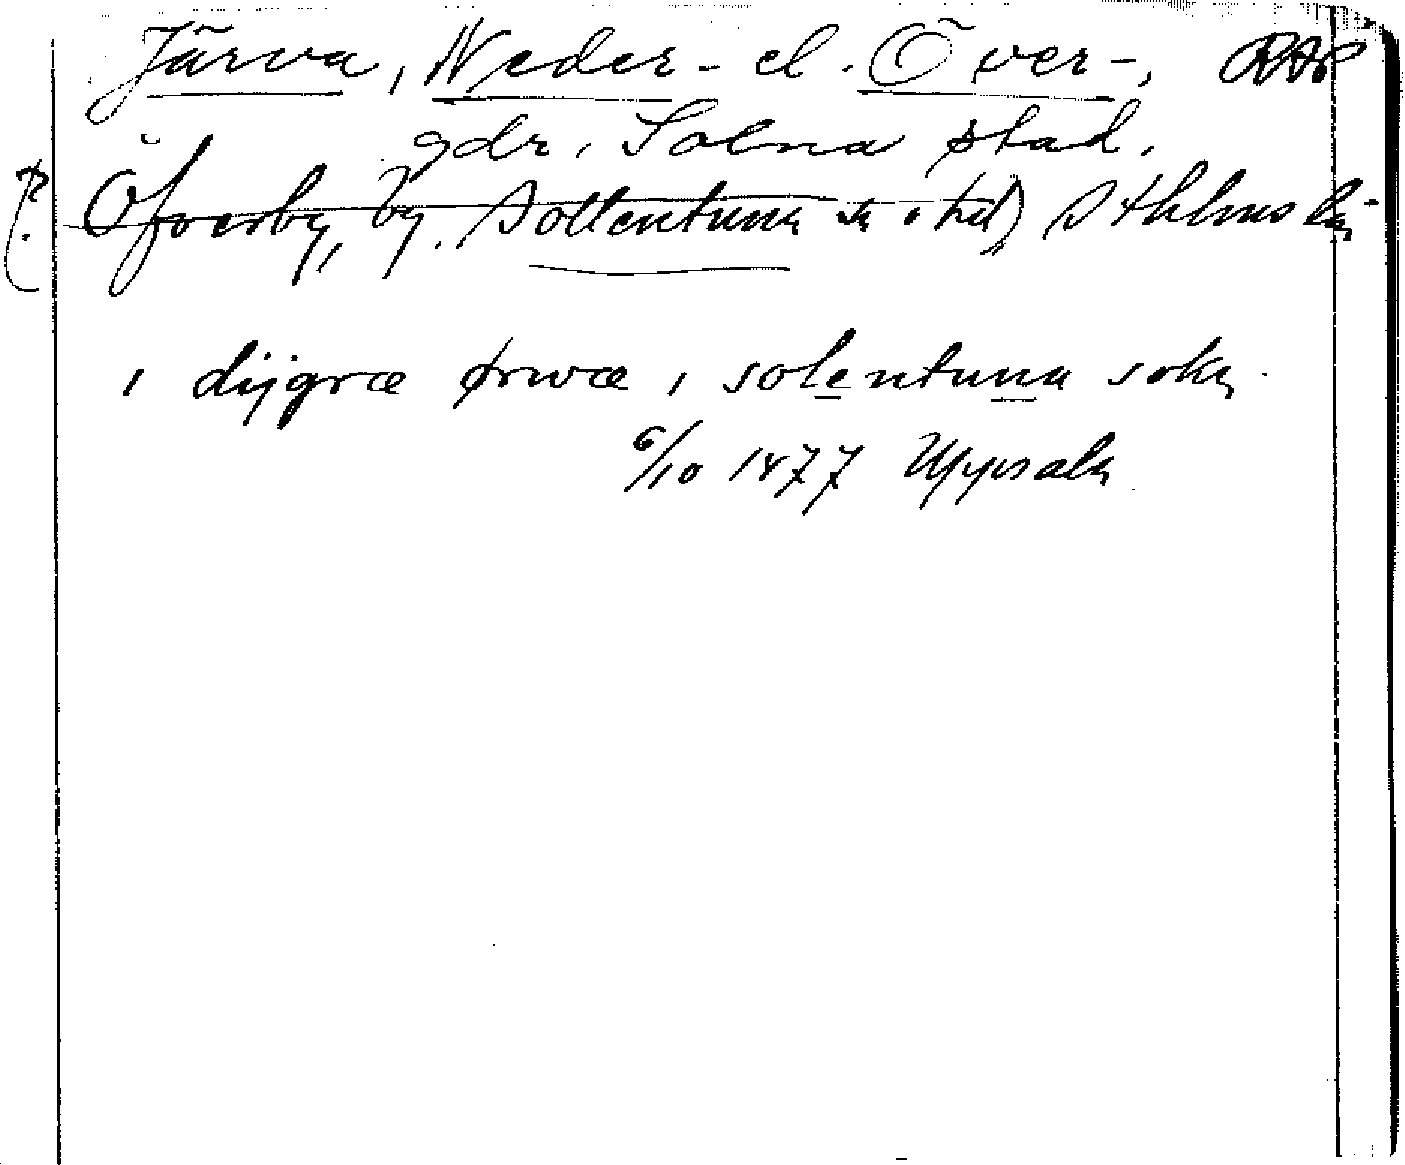 Järva, Neder- el. Över-, RAP
gdr, Solna stad.
Öfverby, by. Sollentuna sn o hd) Sthlms län
i dijgræ ørwæ i solentuna sokn
6/10 1477 Uppsala